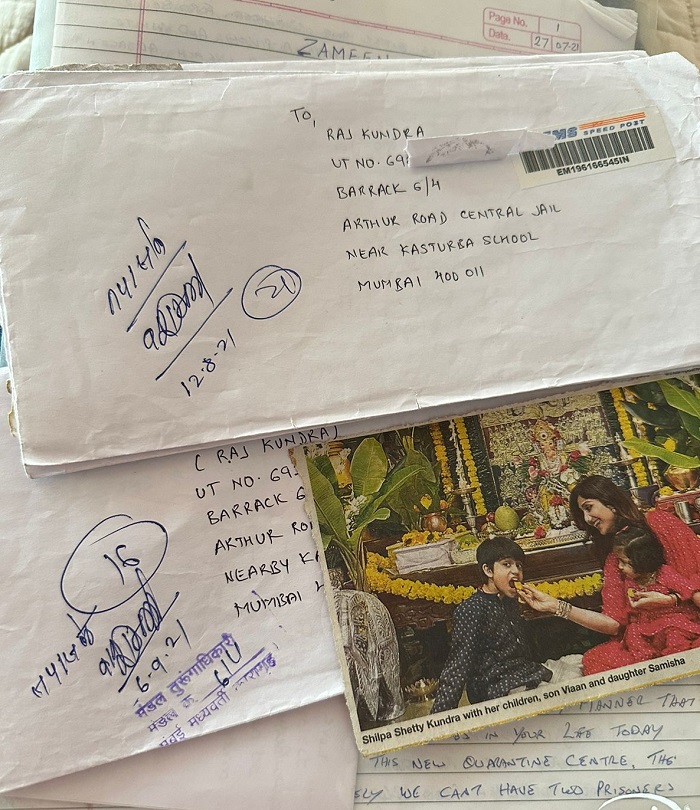 Page No. 1
Date. 27 07-21
ZAMEEN
To,
RAJ KUNDRA
UT NO. 69
BARRACK 6/4
ARTHUR ROAD CENTRAL JAIL
NEAR KASTURBA SCHOOL
MUMBAI 400 011
EMS SPEED POST
EM196166545IN
21
12-8-21
( RAJ KUNDRA)
UT NO. 69
BARRACK 6
ARTHUR RO
NEARBY KA
MUMBAI
16
6-9-21
मंडल तुरुंगाधिकारी
मंडल क्र. 6/U
मुंबई मध्यवर्ती कारागृह
Shilpa Shetty Kundra with her children, son Viaan and daughter Samisha
MANNER THAT
IN YOUR LIFE TODAY
THIS NEW QUARANTINE CENTRE, THE
ELY WE CANT HAVE TWO PRISONERS